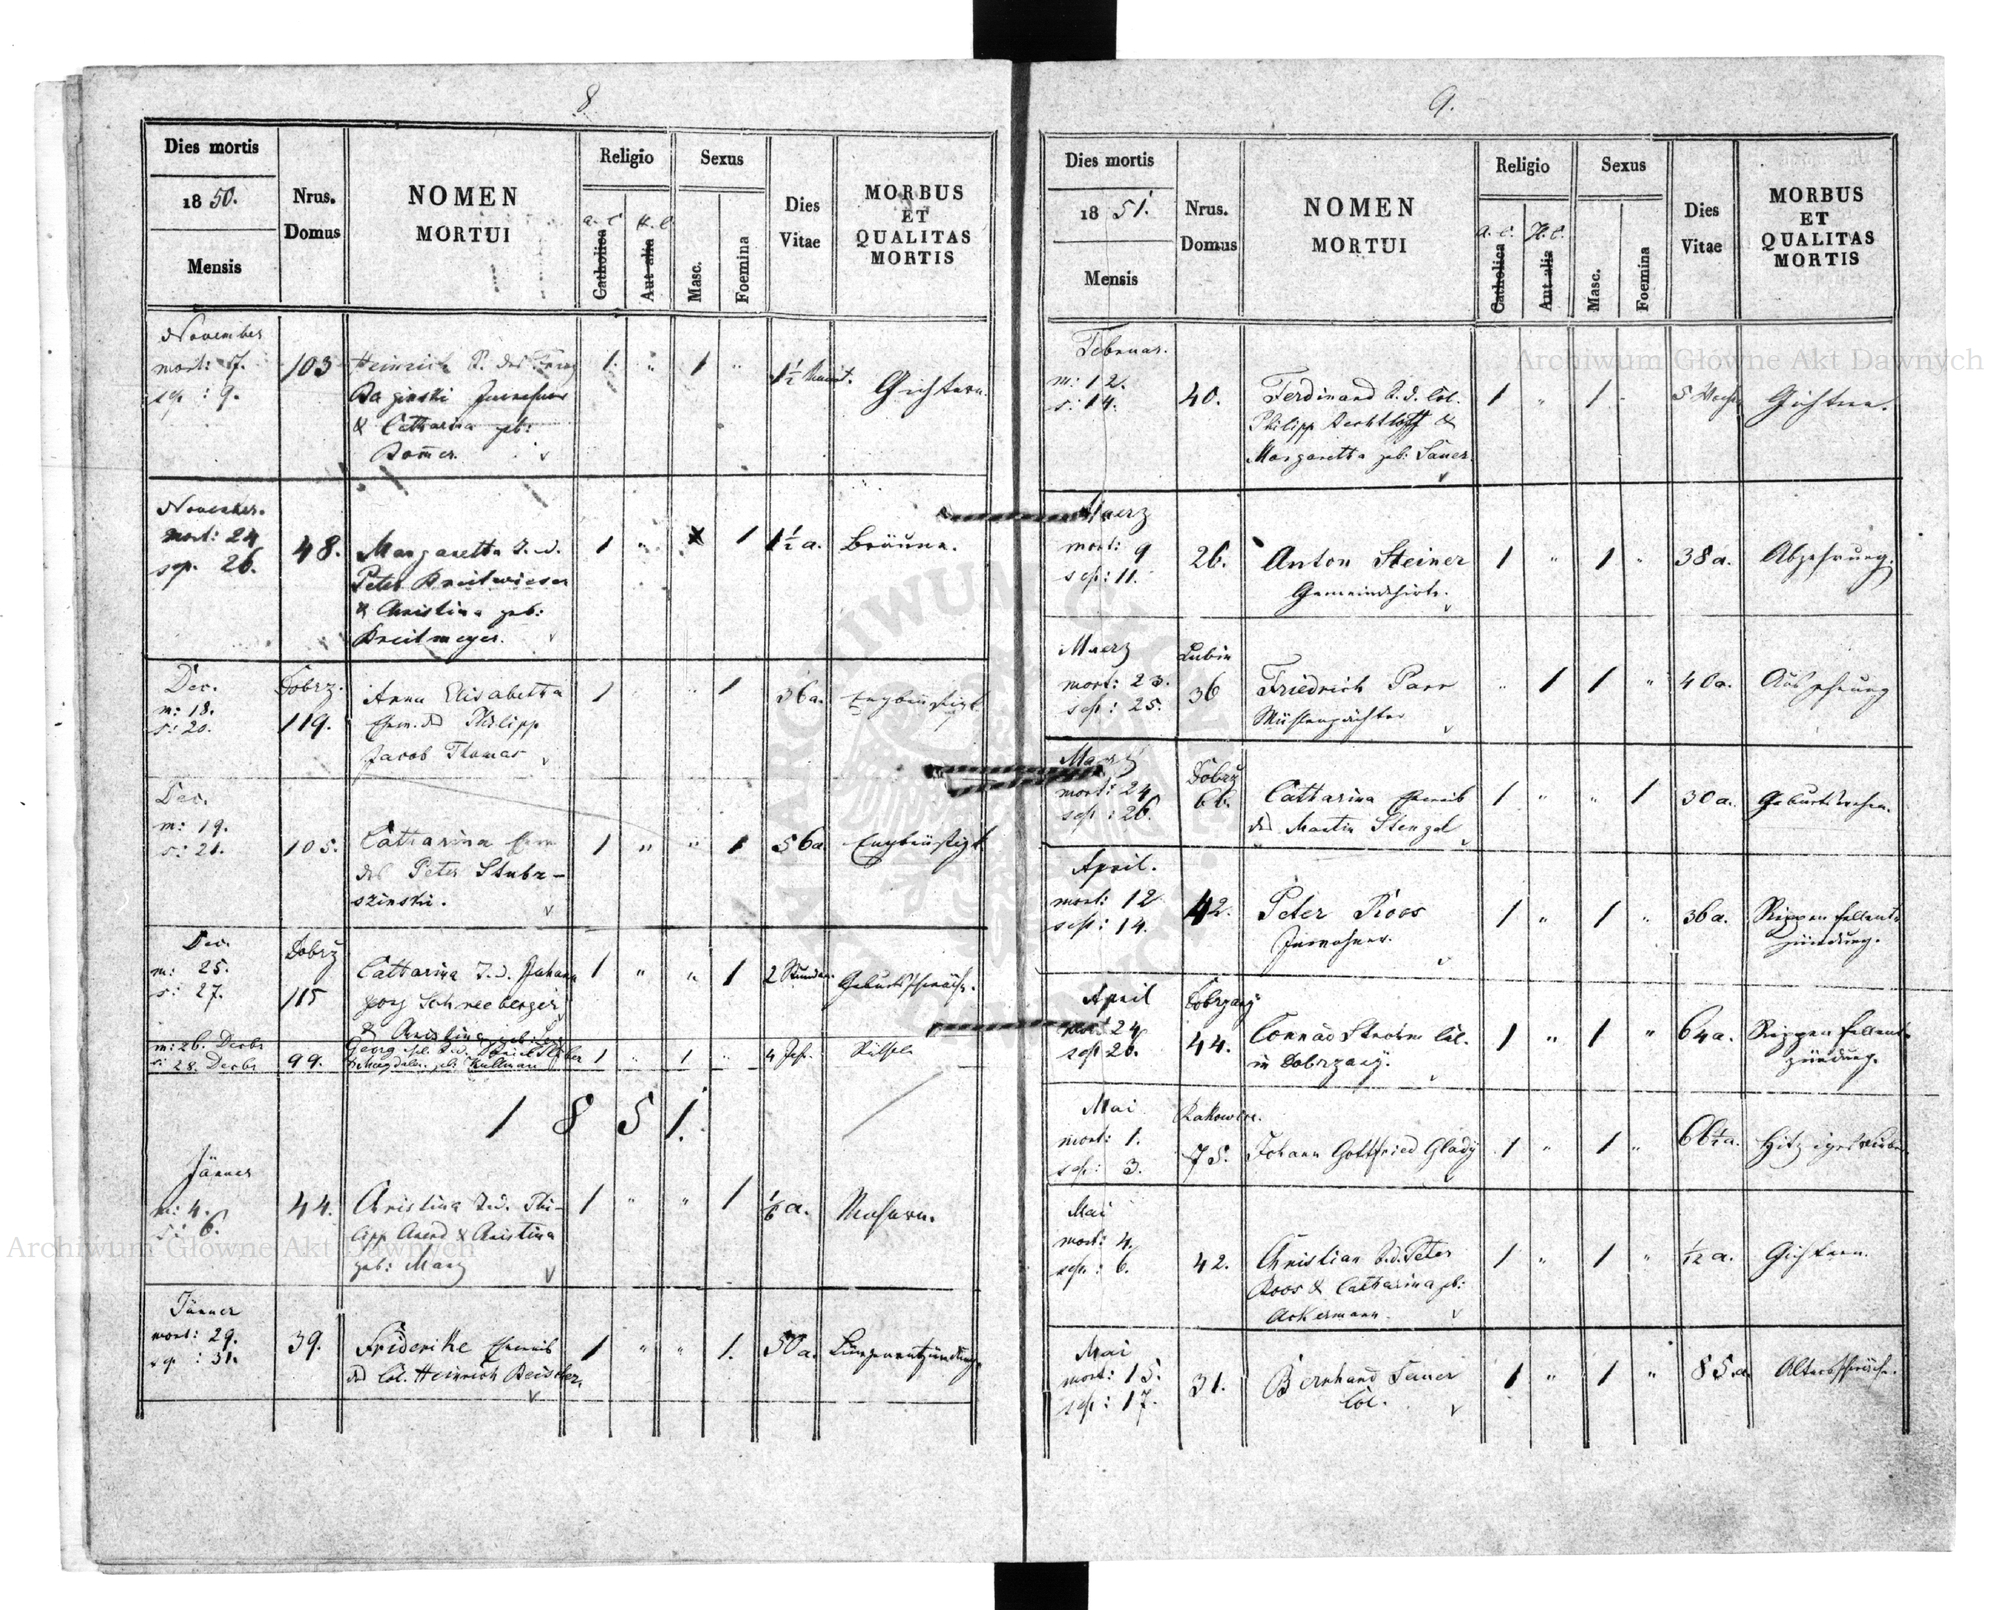 8
Dies mortis
1850.
Mensis
Nrus.
Domus
NOMEN
MORTUI
Religio
a. c.
Catholica
H. C.
Aut alia
Sexus
Masc.
Foemina
Dies
Vitae
MORBUS
ET
QUALITAS
MORTIS
November
mort: 7.
sep : 9.
103
Heinrich S. des
& Catharina geb:
1.
"
1
"
1 1/2 Monat.
Gichtern.
November.
mort: 24
sep. 26.
48.
Margaretha T. d.
Peter Breitwieser
& Christina geb:
Breitmeyer.
1
"
x
1
1 1/2 a.
Bräune.
Dec.
m: 18.
s: 20.
Dobrz.
119.
Anna Elisabetha
Ehew. des Philipp
Jacob Thomas
1
"
"
1
36a.
Engbrüstigk.
Dec.
m: 19.
s: 21.
105.
Catharina Ehew
des Peter Stubr-
szinski.
1
"
"
1
56a
Engbrüstigk.
Dec.
m: 25.
s: 27.
Dobrz
115
Catharina T. d. Johann
Georg Schneeberger
& Christina geb:
1
"
"
1
2 Stunden.
Geburtsschwäche.
m: 26. Decbr
s: 28. Decbr
99.
Georg
Magdalen. geb: Kullman
1
"
1
"
4 Jah.
1851.
Jänner
m: 4.
s: 6.
44.
Christina T. d. Phi-
lipp & Christina
geb: Manz
1
"
"
1
1/6 a.
Masern.
Jänner
mort: 29.
sep : 31.
39.
Friderike Eheweib
des Col. Heinrich Beischer.
1
"
"
1.
50a.
Lungenentzündung.
9.
Dies mortis
1851.
Mensis
Nrus.
Domus
NOMEN
MORTUI
Religio
a. c.
Catholica
H. C.
Aut alia
Sexus
Masc.
Foemina
Dies
Vitae
MORBUS
ET
QUALITAS
MORTIS
Februar.
m: 12.
s: 14.
40.
Ferdinand S. d. Col.
Philipp Bechtloff &
Margaretha geb: Sauer.
1
"
1
5 Woch
Gichtern.
Maerz
mort: 9
sep: 11.
26.
Anton Steiner
Gemeindhirte.
1
"
1
"
38a.
Abzehrung.
Maerz
mort: 23.
sep: 25.
Lubin
36
Friedrich Parr
Mühlenpächter
"
1
1
"
40a.
Abzehrung
Maerz
mort: 24
sep: 26.
Dobrz
66.
Catharina Eheweib
des Martin Stengel
1
"
"
1
30a.
Geburtswehen.
April.
mort: 12
sep: 14.
42.
Peter Roos
Inwohner.
1
"
1
"
36a.
Rippenfellent-
zündung.
April
mort: 24
sep 26.
Dobrzany
44.
Conrad Strohm Col.
in Dobrzany.
1
"
1
"
64a.
Rippenfellent-
zündung.
Mai
mort: 1.
sep: 3.
Rakowice.
75.
Johann Gottfried Glady
1
"
1
"
66 1/2 a.
Hitziges Fieber
Mai
mort: 4.
sep: 6.
42.
Christian S. d. Peter
Roos & Catharina geb:
Ackermann.
1
"
1
"
1/12 a.
Gichtern.
Mai
mort: 15.
sep: 17.
31.
Bernhard Sauer
Col.
1
"
1
"
85.a
Altersschwäche.
Archiwum Główne Akt Dawnych
Archiwum Główne Akt Dawnych